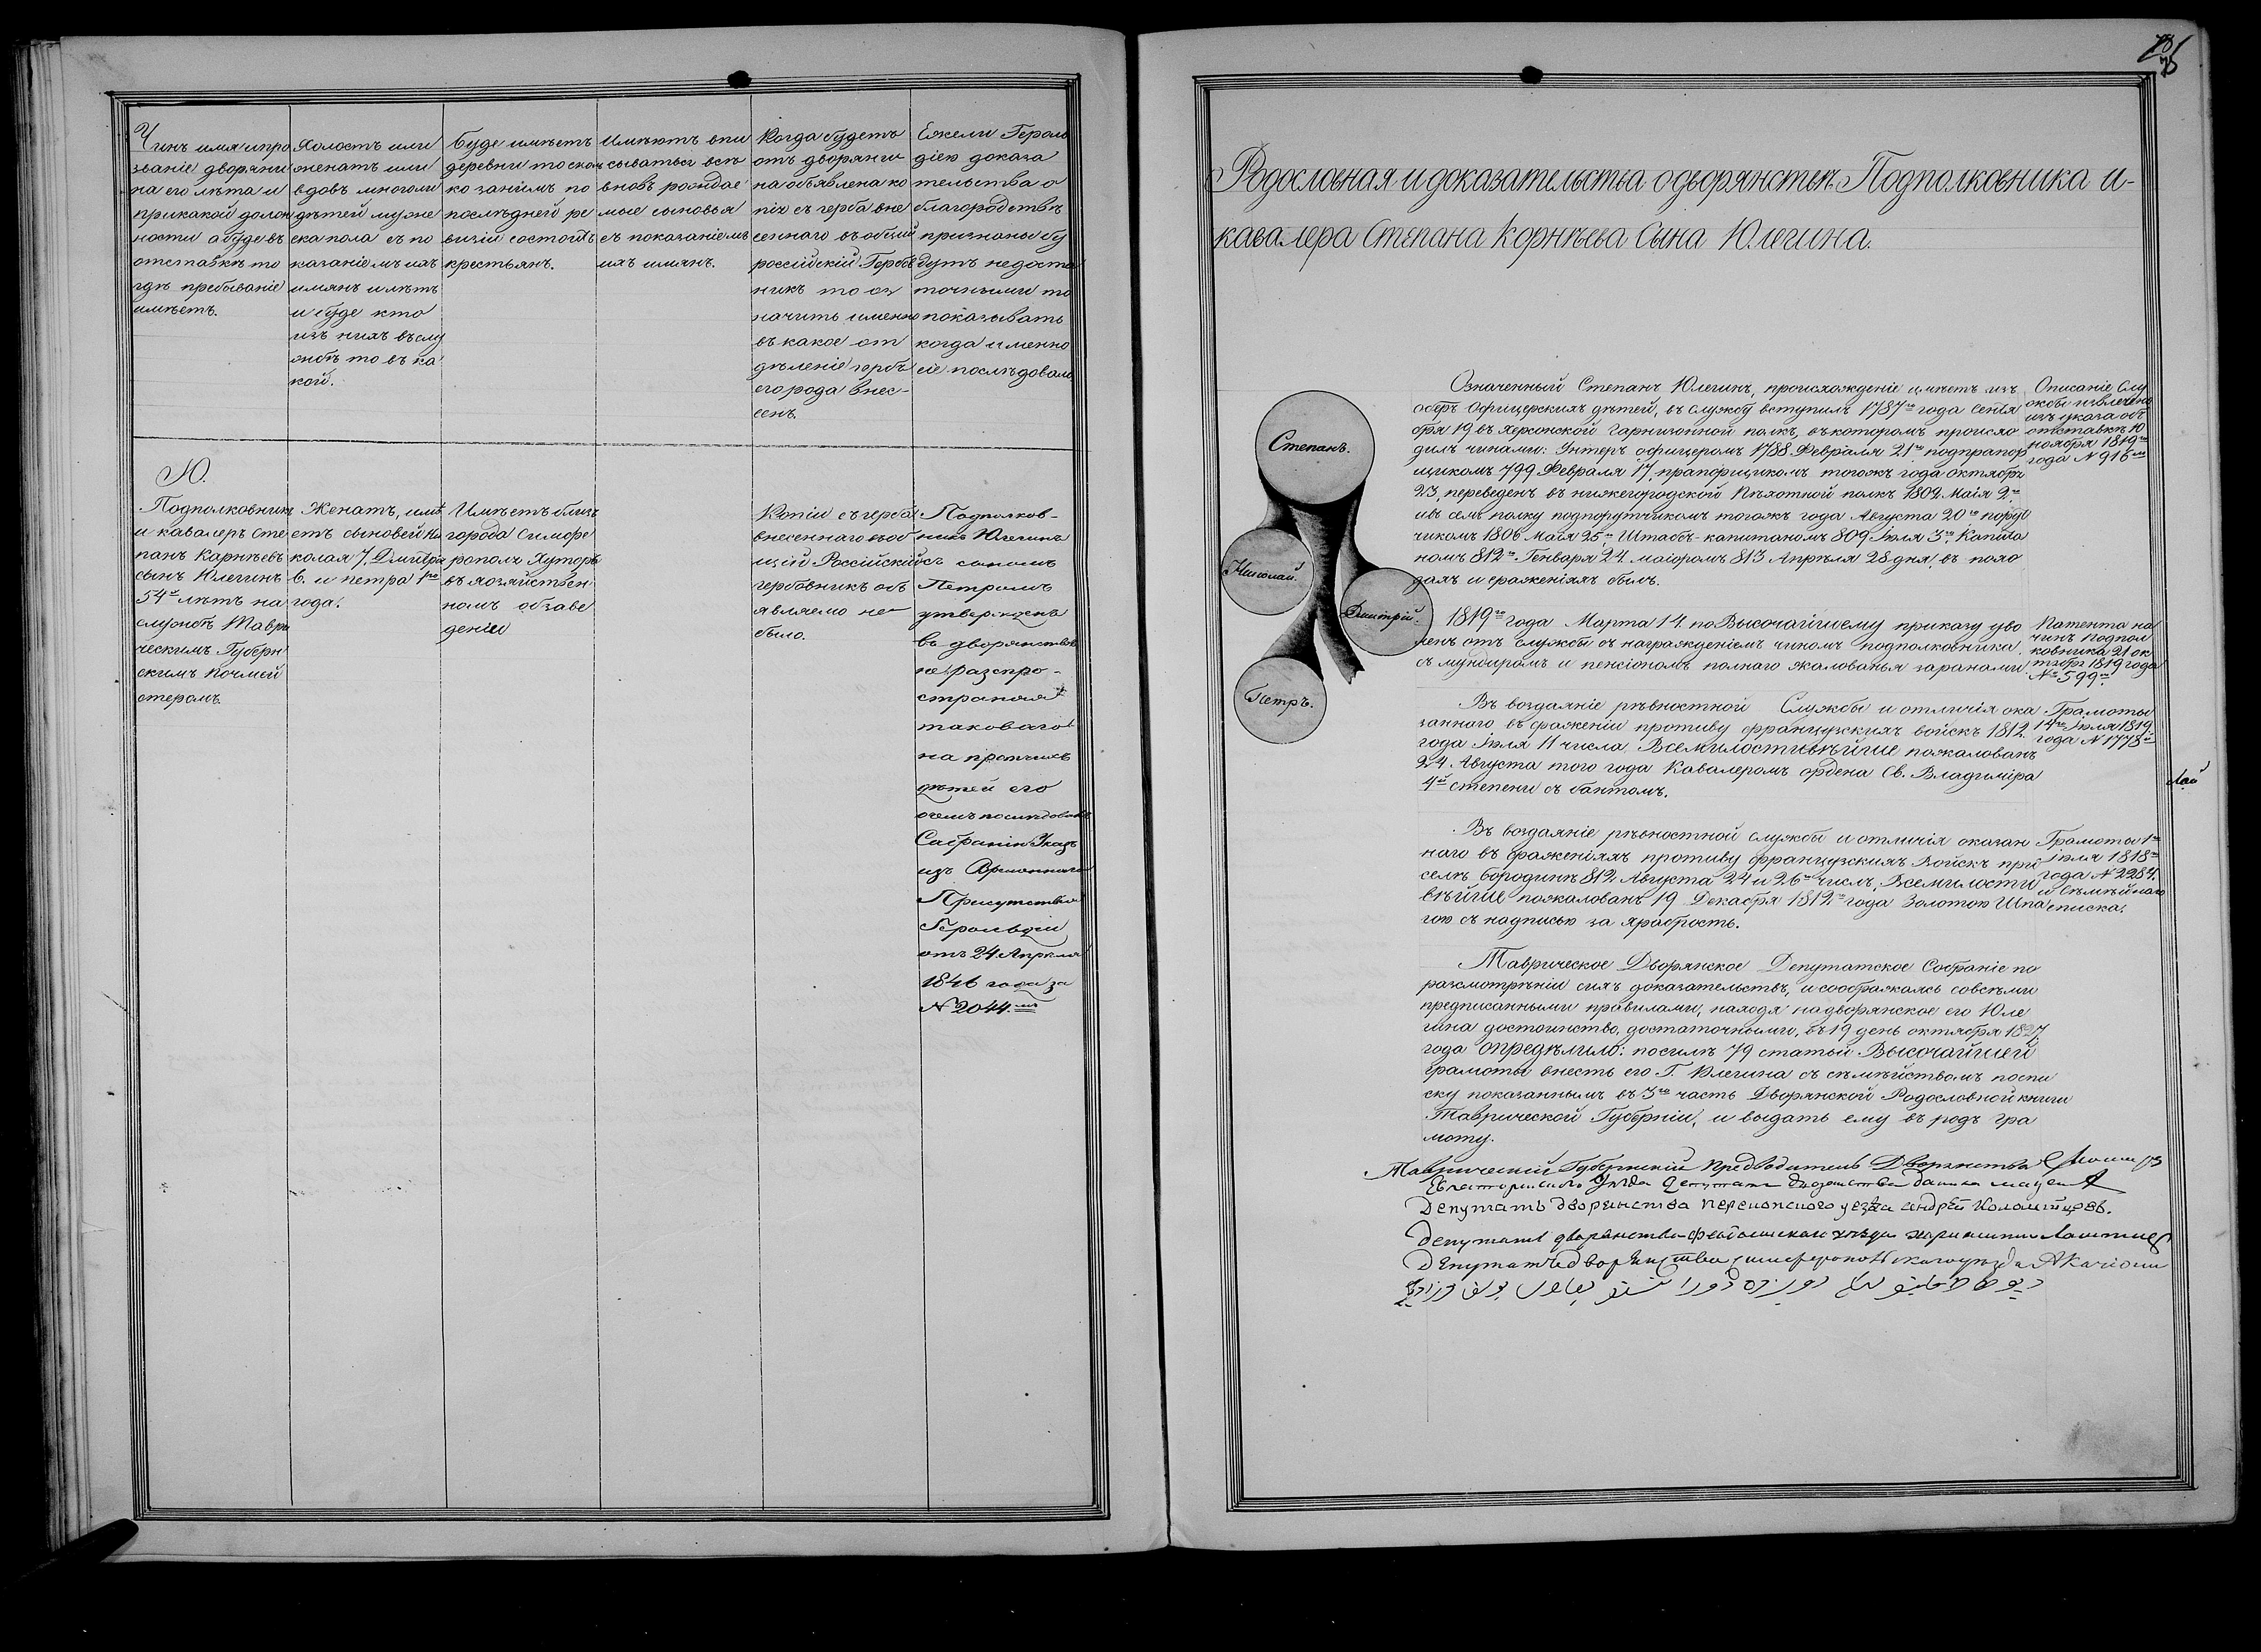 Чинъ имя и про
званіе дворяни
на его лѣта и
при какой долж
ности а буде въ
отставкѣ то
гдѣ пребываніе
имѣетъ.
Холостъ или
женатъ или
вдовъ многоли
дѣтей муже
ска пола съ по
казаніемъ ихъ
имянъ и лѣтъ
и буде кто
изъ нихъ въ слу
жбѣ то въ ка
кой.
буде имѣетъ
деревни то сколь
ко занимъ по
послѣдней ре
визіи состоитъ
крестьянъ.
Имѣютъ впи
сываться всѣ
вновь рождае
мые сыновья
съ показаніемъ
ихъ имянъ.
Когда будетъ
отъ дворяни
на объявлена ко
пія съ герба вне
сеннаго въ общій
россійскій Гербов
никъ то оз
начить именно
въ какое от
дѣленіе гербъ
его рода внес-
сенъ.
Ежели Героль
діею доказа
тельства о
благородствѣ
признаны бу
дутъ недоста
точными то
показывать
когда именно
сіе послѣдовало
Ю.
Подполковникъ
и кавалеръ Сте
панъ Карнѣевъ
сынъ Юлегинъ
54ъ лѣтъ на
службѣ Таври
ческимъ Губерн
скимъ Почмей
стеромъ.
Женатъ, имѣ
етъ сыновей Ни
колая 7, Дмитрія
6. и петра 1го
года.
Имѣетъ близъ
города Симфе
рополя Хуторъ
въ хозяйствен
номъ обзаве
деніи
Копіи съ герба
внесеннаго въ об
щій Россійскій
гербовникъ объ
являемо не
было.
Подполков-
никъ Юлегинъ
съ сыномъ
Петромъ
утвержденъ
въ дворянствѣ
не распро-
страняя
таковаго
на прочихъ
дѣтей его
очемъ послѣдовалъ
Собранію Указъ
изъ Временнаго
Присутствія
Герольдіи
отъ 24 Апрѣля
1846 года за
№ 2044.мъ
Родословная и доказательства о дворянствѣ Подполковника и-
кавалера Степана Корнѣева Сына Юлегина.
Степанъ.
Николай.
Дмитрій.
Петръ.
Означенный Степанъ Юлегинъ, происхожденіе имѣетъ изъ
оберъ офицерскихъ дѣтей, въ службу вступилъ 1787го года Сентя
бря 19 въ херсонской гарнизонной полкъ, въ которомъ происхо
дилъ чинами: Унтеръ офицеромъ 1788 Февраля 21го подпрапор
щикомъ 799 Февраля 17, прапорщикомъ тогожъ года октября
23, переведенъ въ нижегородской Пѣхотной полкъ 1802 Маія 9го
ивъ семъ полку подпорутчикомъ тогожъ года Августа 20го пору
чикомъ 1806 Маія 25го Штабсъ-капитаномъ 809 Іюля 3го, Капита
номъ 812го Генваря 24. маіоромъ 813 Апрѣля 28 дня, въ похо
дахъ и сраженіяхъ былъ.
Описаніе Слу
жбы извлечено
изъ указа объ
отставкѣ 10
ноября 1819го
года № 916мъ
1819го года Марта 14. по Высочайшему приказу уво
ленъ отъ службы съ награжденіемъ чиномъ подполковника,
съ мундиромъ и пенсіономъ полнаго жалованья заранами.
Патента на
чинъ подпол
ковника 21 ок
тября 1819 года
№ 599мъ
Въ воздаяніе ревностной Службы и отличія ока
заннаго въ сраженіи противу французскихъ войскъ 1812.
года Іюля 11 числа Всемилостивѣйше пожалованъ
24 Августа того года Кавалеромъ ордена Св. Владиміра
4й степени съ бантомъ.
Грамоты
14го Іюля 1819.
года № 1778й
Въ воздаяніе ревностной службы и отличія оказан
наго въ сраженіяхъ противу французскихъ Войскъ при
селѣ бородинѣ 812 Августа 24 и 26го числъ, Всемилости
вѣйше пожалованъ 19 Декабря 1812го года Золотою Шпа
гою съ надписью за храбрость.
Грамоты 1го
Іюля 1818го
года № 2284.
и Семейнаго
списка.
Таврическое Дворянское Депутатское Собраніе по
разсмотрѣніи сихъ доказательствъ, и соображаясь совсѣми
предписанными правилами, находя на дворянское его Юле
гина достоинство, достаточными, въ 19 день октября 1827
года опредѣлило: посилѣ 79 статьи Высочайшей
грамоты внесть его Г. Юлегина съ семѣйствомъ поспи
ску показаннымъ въ 3ю часть Дворянской Родословной книги
Таврической Губерніи, и выдать ему въ родъ гра
моту.
Таврическій Губернскій Предводитель Дворянства
Евпаторискаго Уѣзда Депутатъ
Депутатъ дворянства Перекопского уезда андрей Коломитцовъ.
Депутатъ дворянства Феодосискаго уѣзда
Депутатъ Дворянства симферопольскаго уѣзда